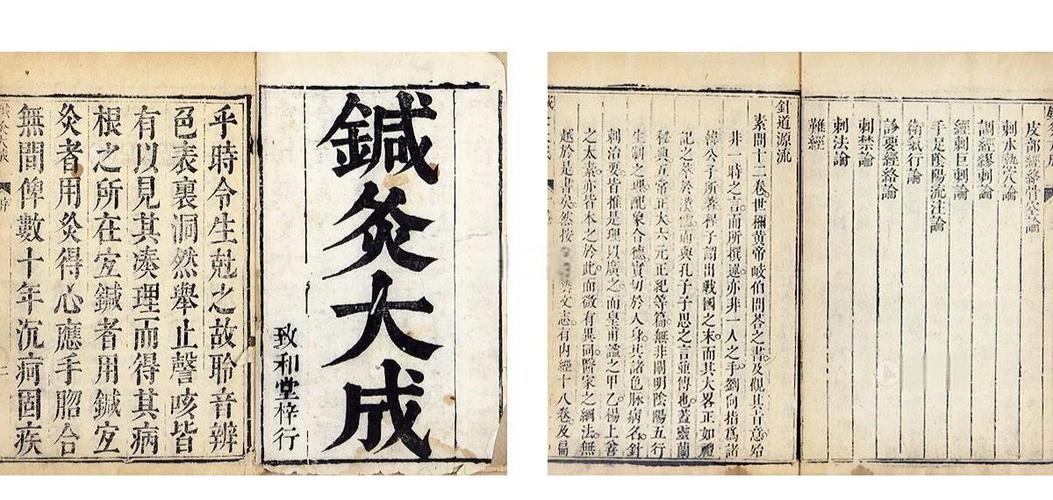 鍼灸大成
致和堂梓行
乎時令生尅之故聆音辨
色表裏洞然舉止謦咳皆
有以見其凑理而得其病
根之所在宜鍼者用鍼宜
灸者用灸得心應手脗合
無間俾數十年沉疴固疾
皮部經絡骨空論
刺水熱穴論
調經繆刺論
經刺巨刺論
手足陰陽流注論
衛氣行論
診要經絡論
刺禁論
刺法論
難經
針道源流
素問十二卷世稱黃帝岐伯問荅之書及觀其旨意殆
非一時之言而所撰述亦非一人之手劉向指爲諸
韓公子所著程子謂出戰國之末而其大畧正如禮
記之萃於漢儒而與孔子子思之言並傳也蓋靈蘭
秘典五常正大六元正紀等篇無非闡明陰陽五行
生制之理配象合德實切於人身其諸色脉病名針
刺治要皆推是理以廣之而皇甫謐之甲乙楊上善
之太素亦皆本之於此而微有異同醫家之綱法無
越於是書矣然按 藝文志有内經十八卷及扁